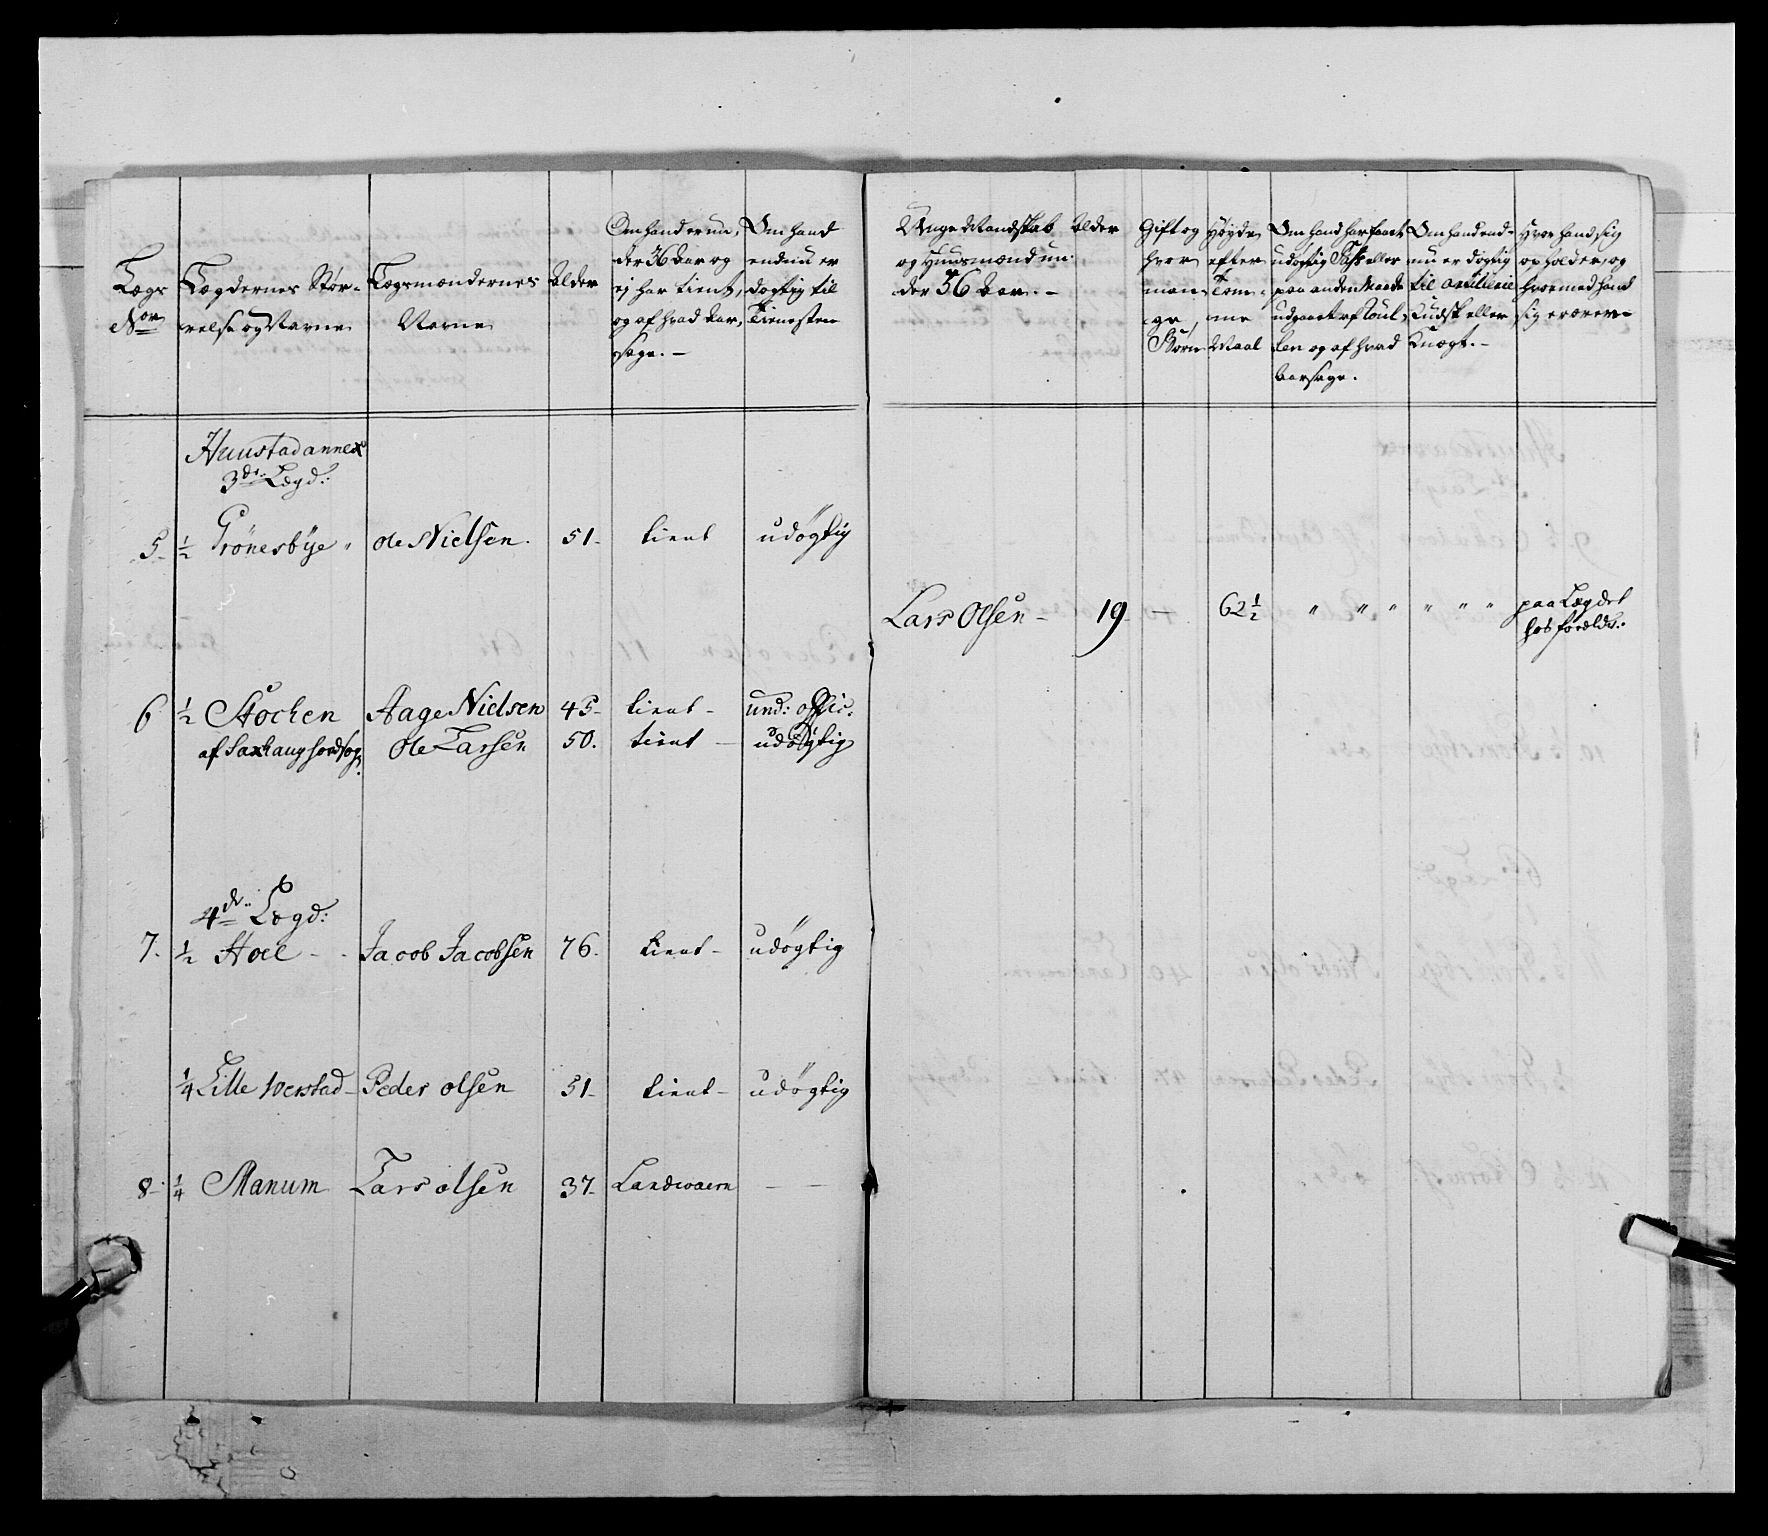 Lægs
No
Lægdernes Stør-
relse og Navne
Lægsmændernes
Navne
Alder
Om hand er un-
der 36 Aar og
ej har tient,
og af hvad Aar-
sage.-
Om hand
endnu er
døgtig til
Tienesten
Unge Mandskab
og Huusmænd un-
der 36 Aar.-
Alder
Gift og
hvor
man-
ge
Børn
Høyde
efter
Tom-
me
Maal
Om hand har faaet
udøgtig Pass eller
paa anden Maade
udgaaet af Roul-
len og af hvad
Aarsage.
Om hand end-
nu er døgtig
til Artilleriet
Kudsk eller
Knægt.-
Hvor hand sig
opholder, og
hvormed hand
sig erærer-
Huustad annex
3de Lægd:
5. ½ Grønesbye ole Nielsen. 51- tient udøgtig
Lars Olsen - 19 - 62½ " " " " " " paa Lægdet
hos foreldr:
6 ½ Stochen Aage Nielsen 45- tient - und: offic:
af Saxhaug hovedsogn Ole Larsen 50. tient - udøgtig
4de Lægd:
7. ½ Hoel - - Jacob Jacobsen 76. tient - udøgtig
¼ Lille Werstad - Peder olsen 51- tient - udøgtig
8- ¼ Manum Lars olsen 37- Landwærn - -